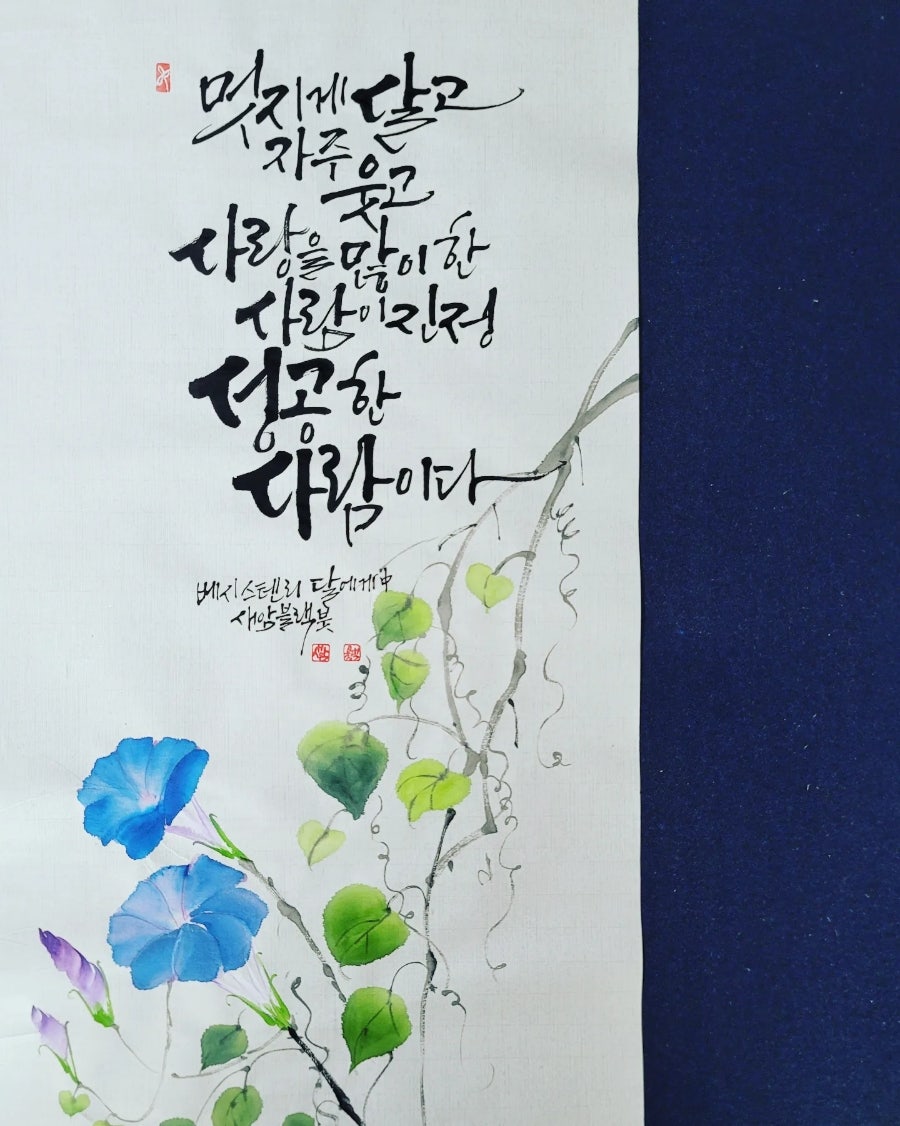 멋지게 살고
자주 웃고
사랑을 많이 한
사람이 진정
성공한
사람이다
베시 스텐리 中
새암블랙붓